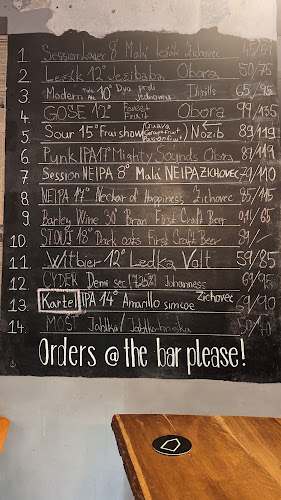 1. Session Lager 8° Malá Ležák Zichovec 45/59
2. Ležák 12° Jezibaba Obora 50/75
3. Modern Pale Ale 10° Dva proti jednomu 65/95
4. GOSE 12° Forest Fruit Obora 99/135
5. Sour 15° Fruishow (Guava Grapefruit Passionfruit) Nozib 89/119
6. Punk IPA 17° Mighty Sounds Obora 87/119
7. Session NEIPA 8° Malá NEIPA ZICHOVEC /110
8. NEIPA 17° Nectar of Happiness, Zichovec 85/115
9. Barley Wine 30° Bran First Craft Beer 0,1l/65
10. STOUT 18° Dark oats First Craft Beer 89/-
11. Witbier 12° Ledka Volt 59/85
12. CYDER Demi sec Johanness 69/95
13. Kartel IPA 14° Amarillo simcoe Zichovec /90
14. MOŠT Jablko/ 50/70
Orders @ the bar please!